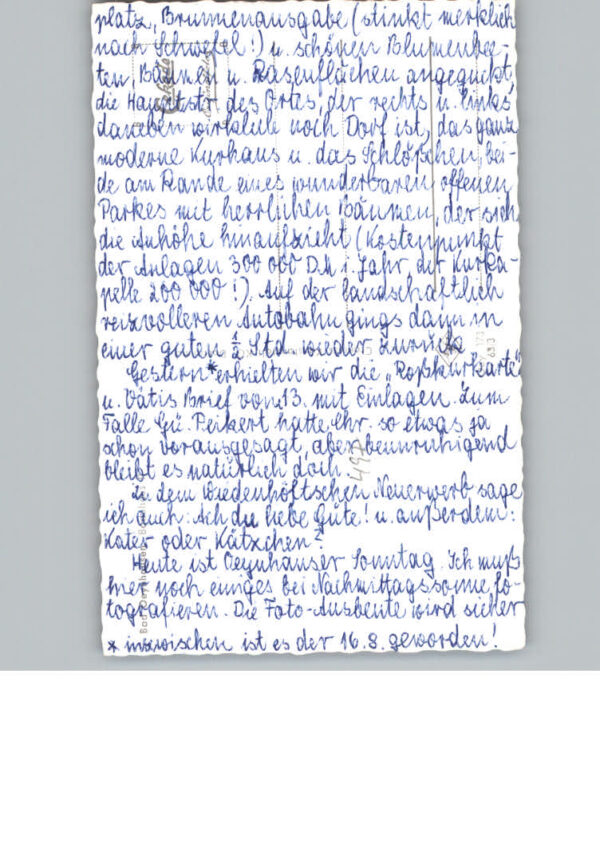 platz, Brunnenausgabe (stinkt merklich
nach Schwefel!) u. schönen Blumenbee-
ten, Bäumen u. Rasenflächen angeguckt,
die Hauptstr. des Ortes, der rechts u. links
daneben wirklich noch Dorf ist, das ganz
moderne Kurhaus u. das Schlößchen, bei-
de am Rande eines wunderbaren offenen
Parkes mit herrlichen Bäumen, der sich
die Anhöhe hinaufzieht (Kostenpunkt
der Anlagen 300 000 D.M i. Jahr, der Kurka-
pelle 200 000!). Auf der landschaftlich
reizvolleren Autobahn gings dann in
einer guten 1/2 Std. wieder zurück.
Gestern * erhielten wir die „Roßkurkarte"
u. Vatis Brief vom 13. mit Einlagen. Zum
Falle Gü. Peikert hatte Chr. so etwas ja
schon vorausgesagt, aber beunruhigend
bleibt es natürlich doch.
Zu dem Wiedenhöftschen Neuerwerb sage
ich auch: Ach du liebe Güte! u. außerdem:
Kater oder Kätzchen?
Heute ist Oeynhauser Sonntag. Ich muß
hier noch einiges bei Nachmittagssonne fo-
tografieren. Die Foto-Ausbeute wird sicher
* inzwischen ist es der 16.8. geworden!
497